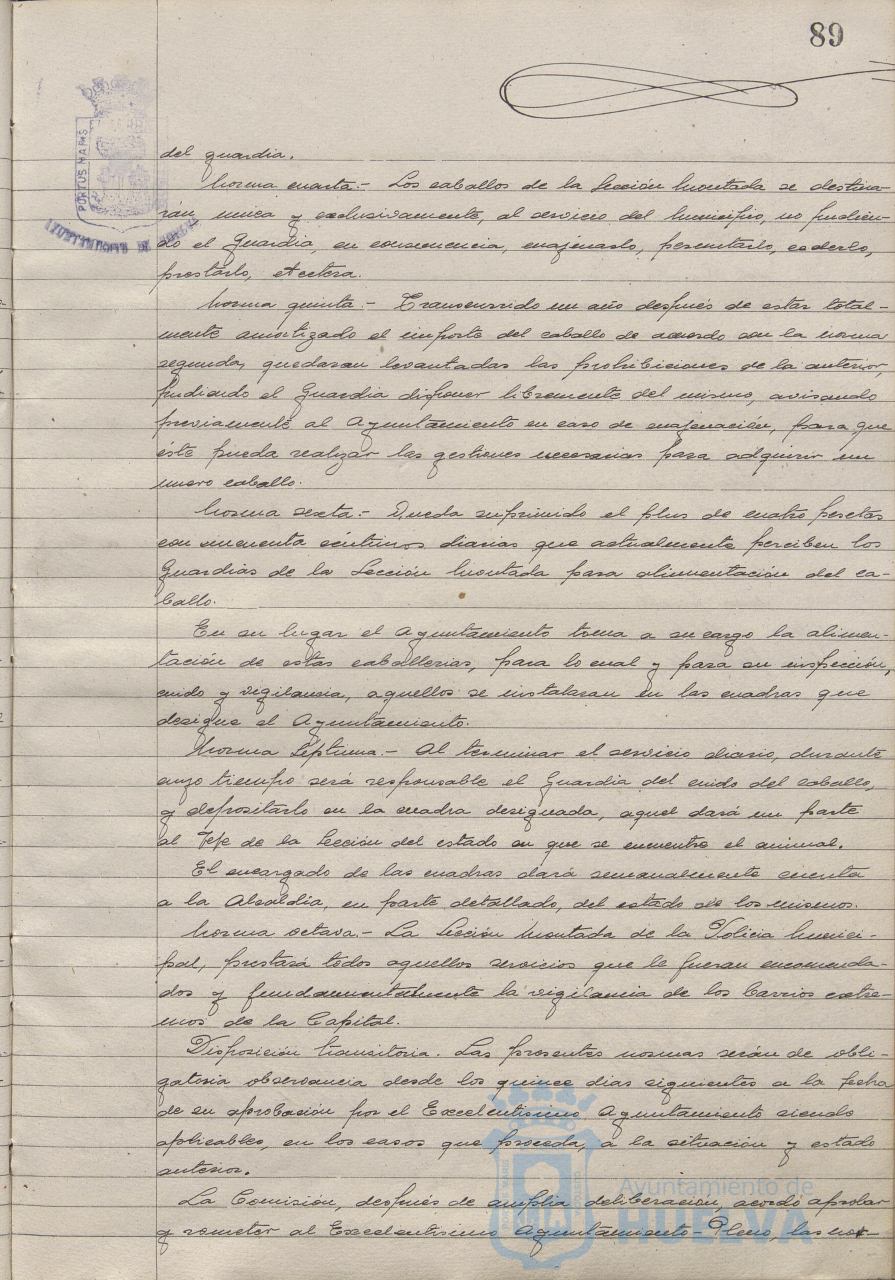 89
PORTUS MARIS
AYUNTAMIENTO DE HUELVA
del guardia.
Norma cuarta.- Los caballos de la Sección Montada se destina-
rán única y exclusivamente, al servicio del Municipio, no pudien-
do el Guardia, en consecuencia, enajenarlo, permutarlo, cederlo,
prestarlo, etcétera.
Norma quinta.- Transcurrido un año después de estar total-
mente amortizado el importe del caballo de acuerdo con la norma
segunda, quedaran levantadas las prohibiciones de la anterior,
pudiendo el Guardia disponer libremente del mismo, avisando
previamente al Ayuntamiento en caso de enajenación, para que
éste pueda realizar las gestiones necesarias para adquirir un
nuevo caballo.
Norma sexta.- Queda suprimido el plus de cuatro pesetas
con cincuenta céntimos diarias que actualmente perciben los
Guardias de la Sección Montada para alimentación del ca-
ballo.
En su lugar el Ayuntamiento toma a su cargo la alimen-
tación de estas caballerias, para lo cual y para su inspección,
cuido y vigilancia, aquellos se instalaran en las cuadras que
designe el Ayuntamiento.
Norma Séptima.- Al terminar el servicio diario, durante
cuyo tiempo será responsable el Guardia del cuido del caballo,
y depositarlo en la cuadra designada, aquel dará un parte
al Jefe de la Sección del estado en que se encuentre el animal.
El encargado de las cuadras dará semanalmente cuenta
a la Alcaldía, en parte detallado, del estado de los mismos.
Norma octava.- La Sección Montada de la Policia Munici-
pal, prestará todos aquellos servicios que le fueran encomenda-
dos y fundamentalmente la vigilancia de los barrios extre-
mos de la Capital.
Disposición transitoria. Las presentes normas serán de obli-
gatoria observancia desde los quince dias siguientes a la fecha
de su aprobación por el Excelentisimo Ayuntamiento siendo
aplicables, en los casos que proceda, a la situación y estado
anterior.
La Comisión, después de amplia deliberación, acordó aprobar
y someter al Excelentisimo Ayuntamiento-Pleno, las nor-
Ayuntamiento de
HUELVA